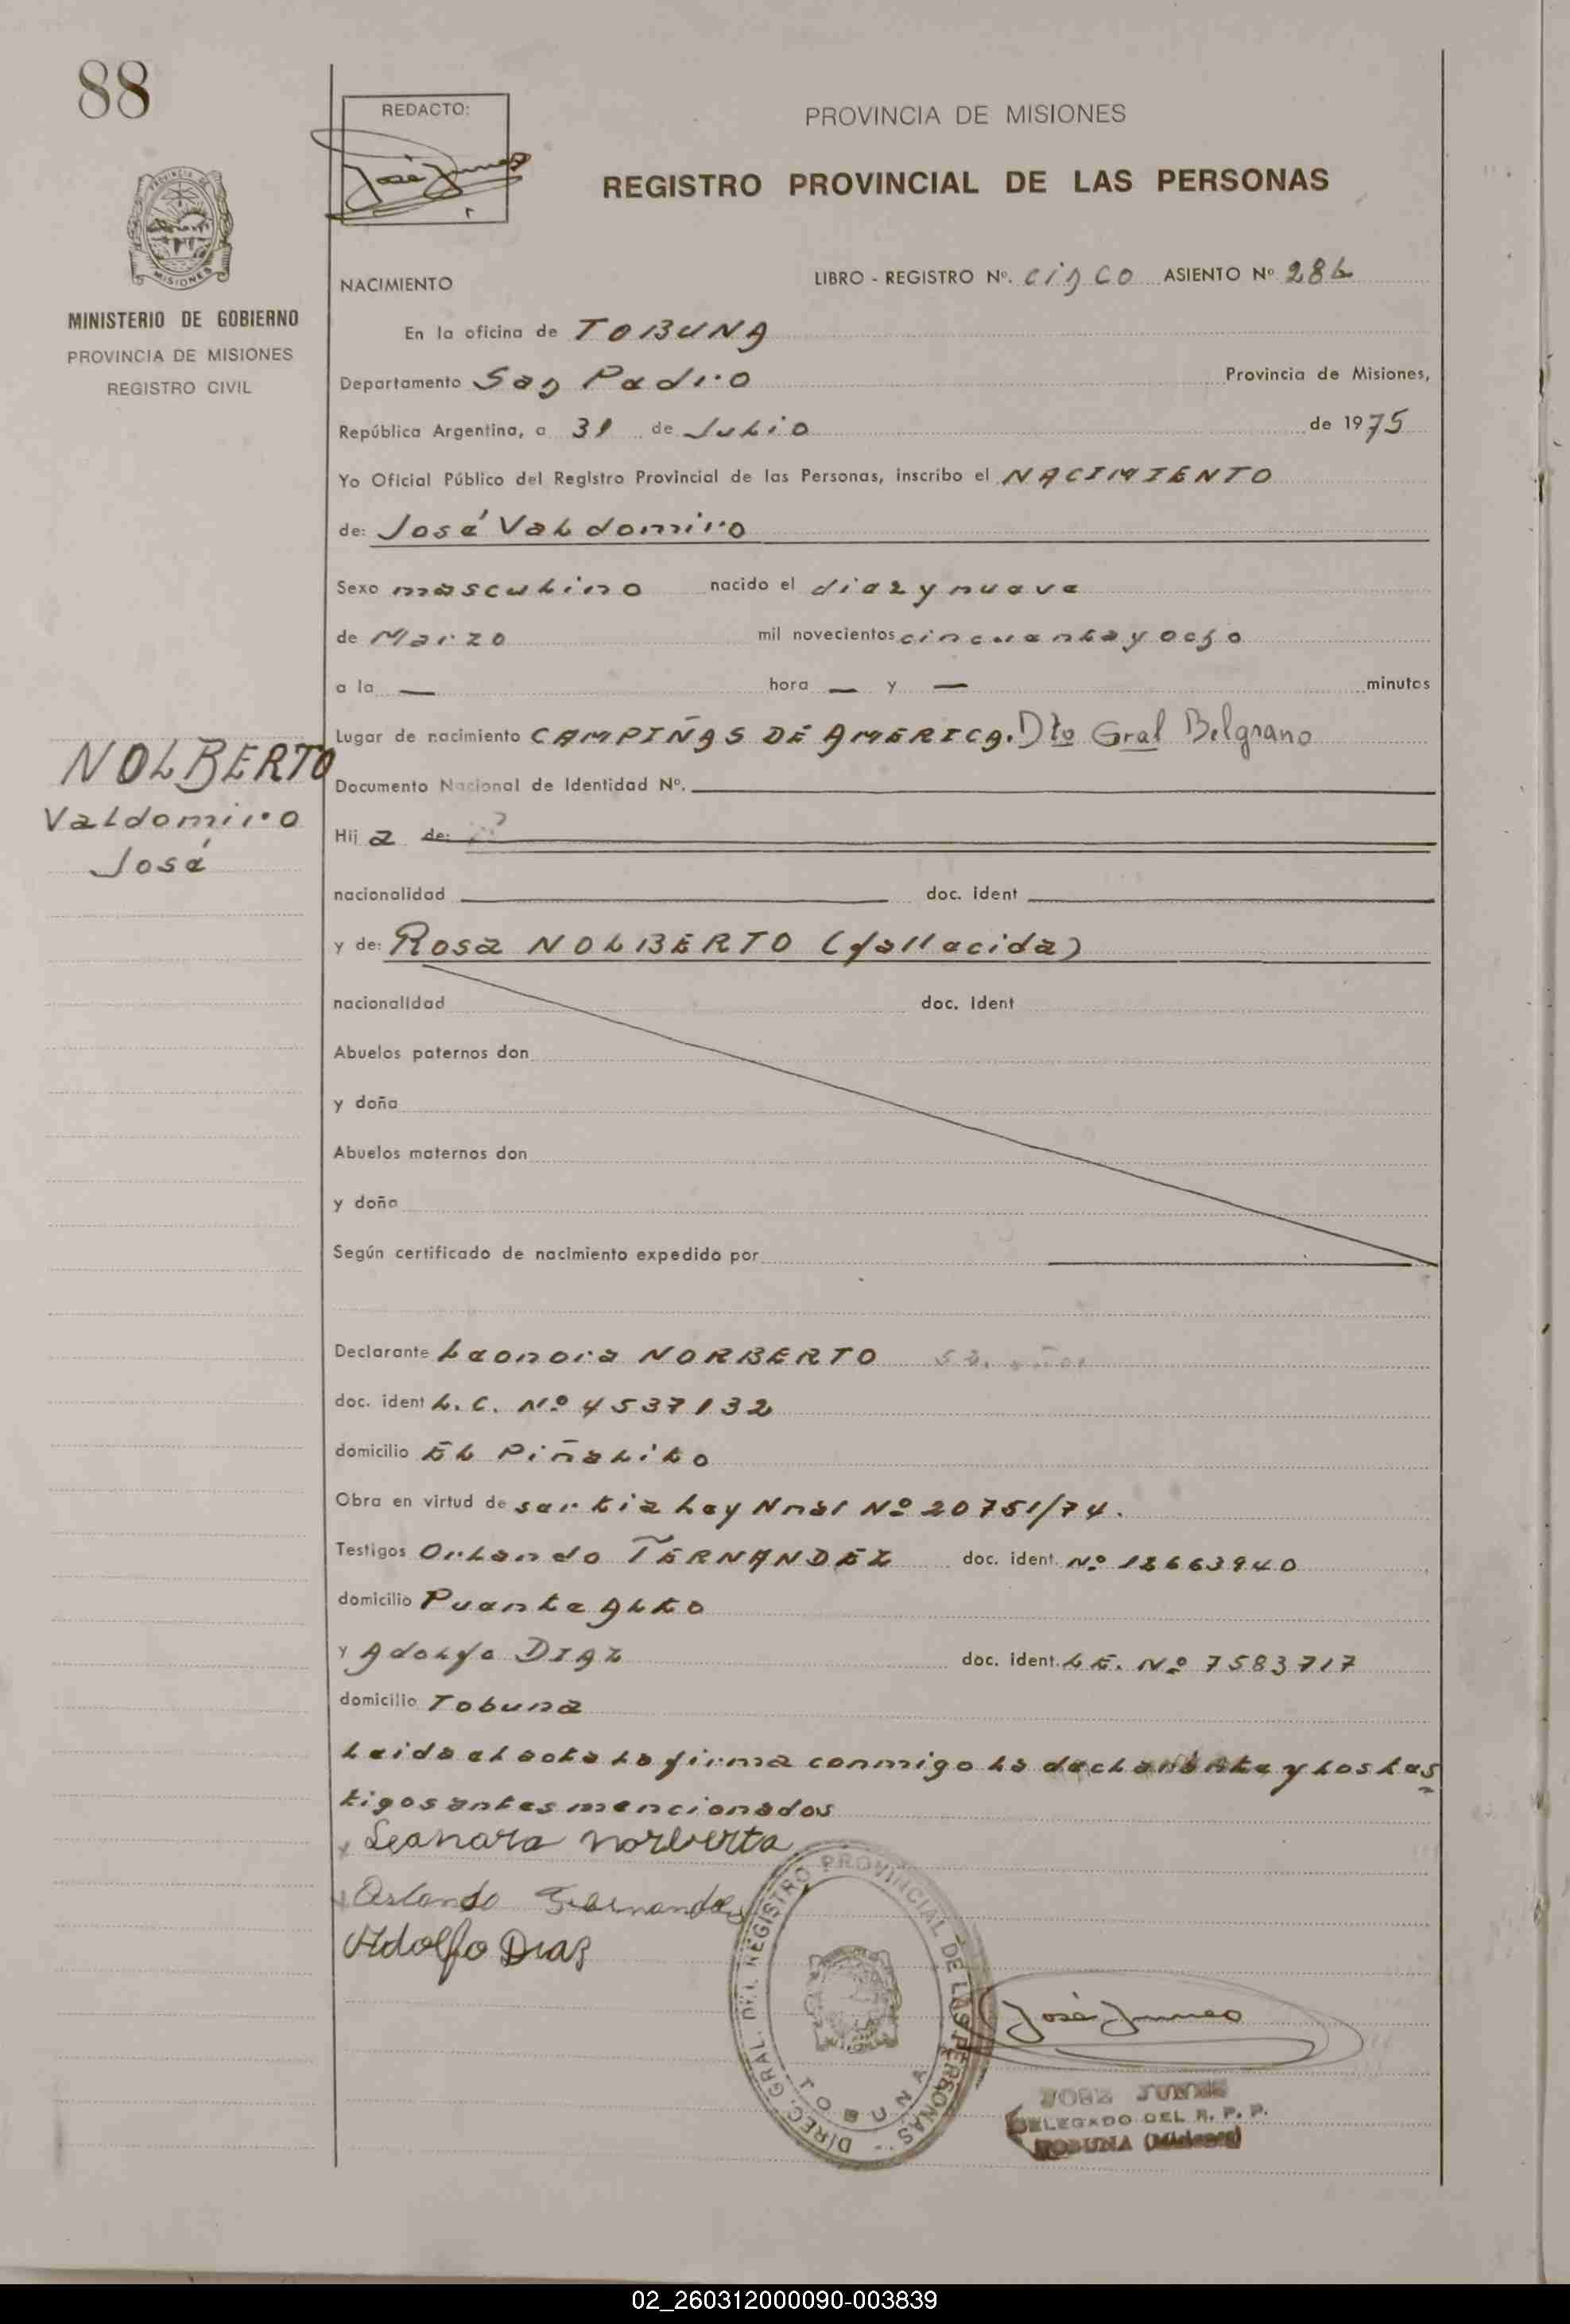 88
REDACTO:
José Junes
PROVINCIA DE MISIONES
REGISTRO PROVINCIAL DE LAS PERSONAS
PROVINCIA DE
MISIONES
MINISTERIO DE GOBIERNO
PROVINCIA DE MISIONES
REGISTRO CIVIL
NACIMIENTO LIBRO - REGISTRO Nº. cinco ASIENTO Nº 286
En la oficina de TOBUNA
Departamento San Pedro Provincia de Misiones,
República Argentina, a 31 de Julio de 1975
Yo Oficial Público del Registro Provincial de las Personas, inscribo el NACIMIENTO
de: José Valdomiro
Sexo masculino nacido el diez y nueve
de Marzo mil novecientos cincuenta y ocho
a la — hora — y — minutos
Lugar de nacimiento CAMPIÑAS DE AMERICA. Dto Gral Belgrano
NOLBERTO
Valdomiro
José
Documento Nacional de Identidad Nº.
Hij a de:
nacionalidad doc. ident
y de: Rosa NOLBERTO (fallecida)
nacionalidad doc. ident
Abuelos paternos don
y doña
Abuelos maternos don
y doña
Según certificado de nacimiento expedido por
Declarante Leonora NORBERTO
doc. ident L. C. Nº 4537132
domicilio El Piñalito
Obra en virtud de ser tia Ley Nnal Nº 20751/74.
Testigos Orlando FERNANDEZ doc. ident. Nº 12663940
domicilio Puente Alto
y Adolfo DIAZ doc. ident. L E. Nº 7583717
domicilio Tobuna
Leida el acta la firma conmigo la declarante y los tes
tigos antes mencionados
Leanara Norberta
Orlando Fernandez
Adolfo Diaz
DIREC. GRAL. DEL REGISTRO PROVINCIAL DE LAS PERSONAS
TOBUNA
José Junes
JOSE JUNES
DELEGADO DEL R. P. P.
TOBUNA (Misiones)
02_260312000090-003839